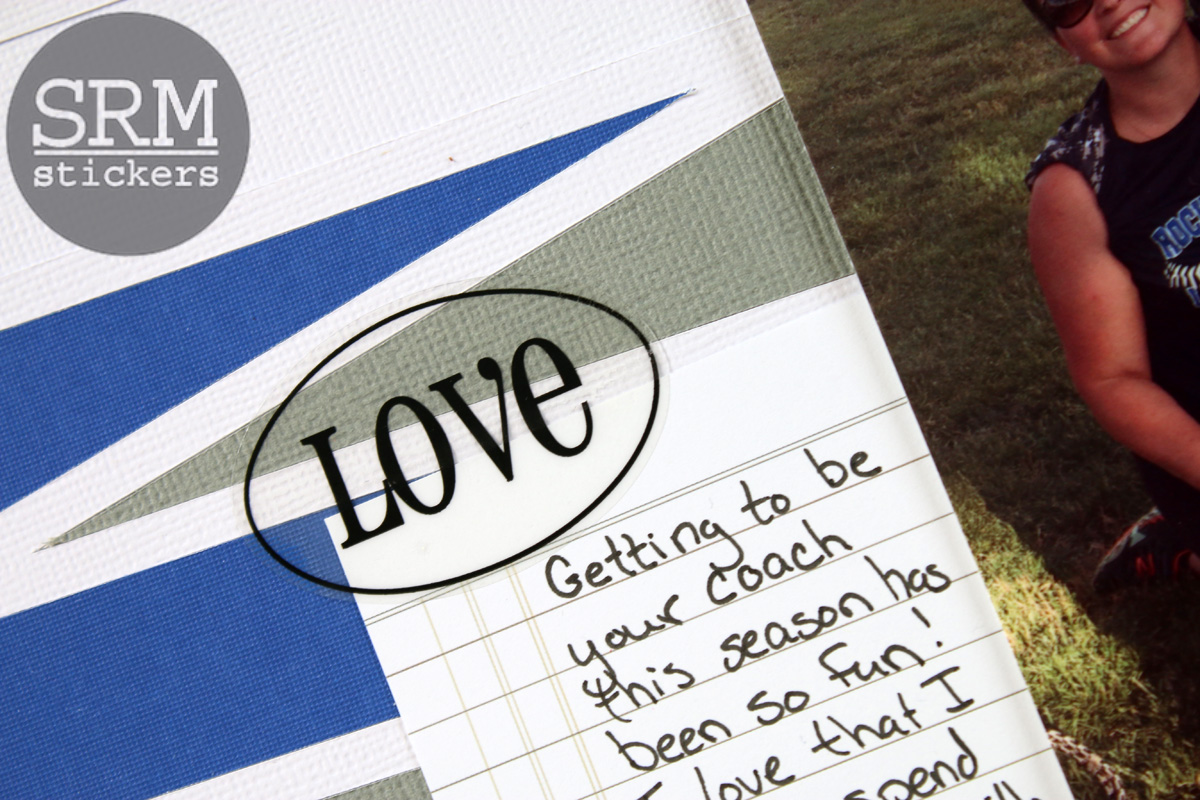 SRM
stickers
Love
Getting to be
your coach
this season has
been so fun!
I love that I
spend